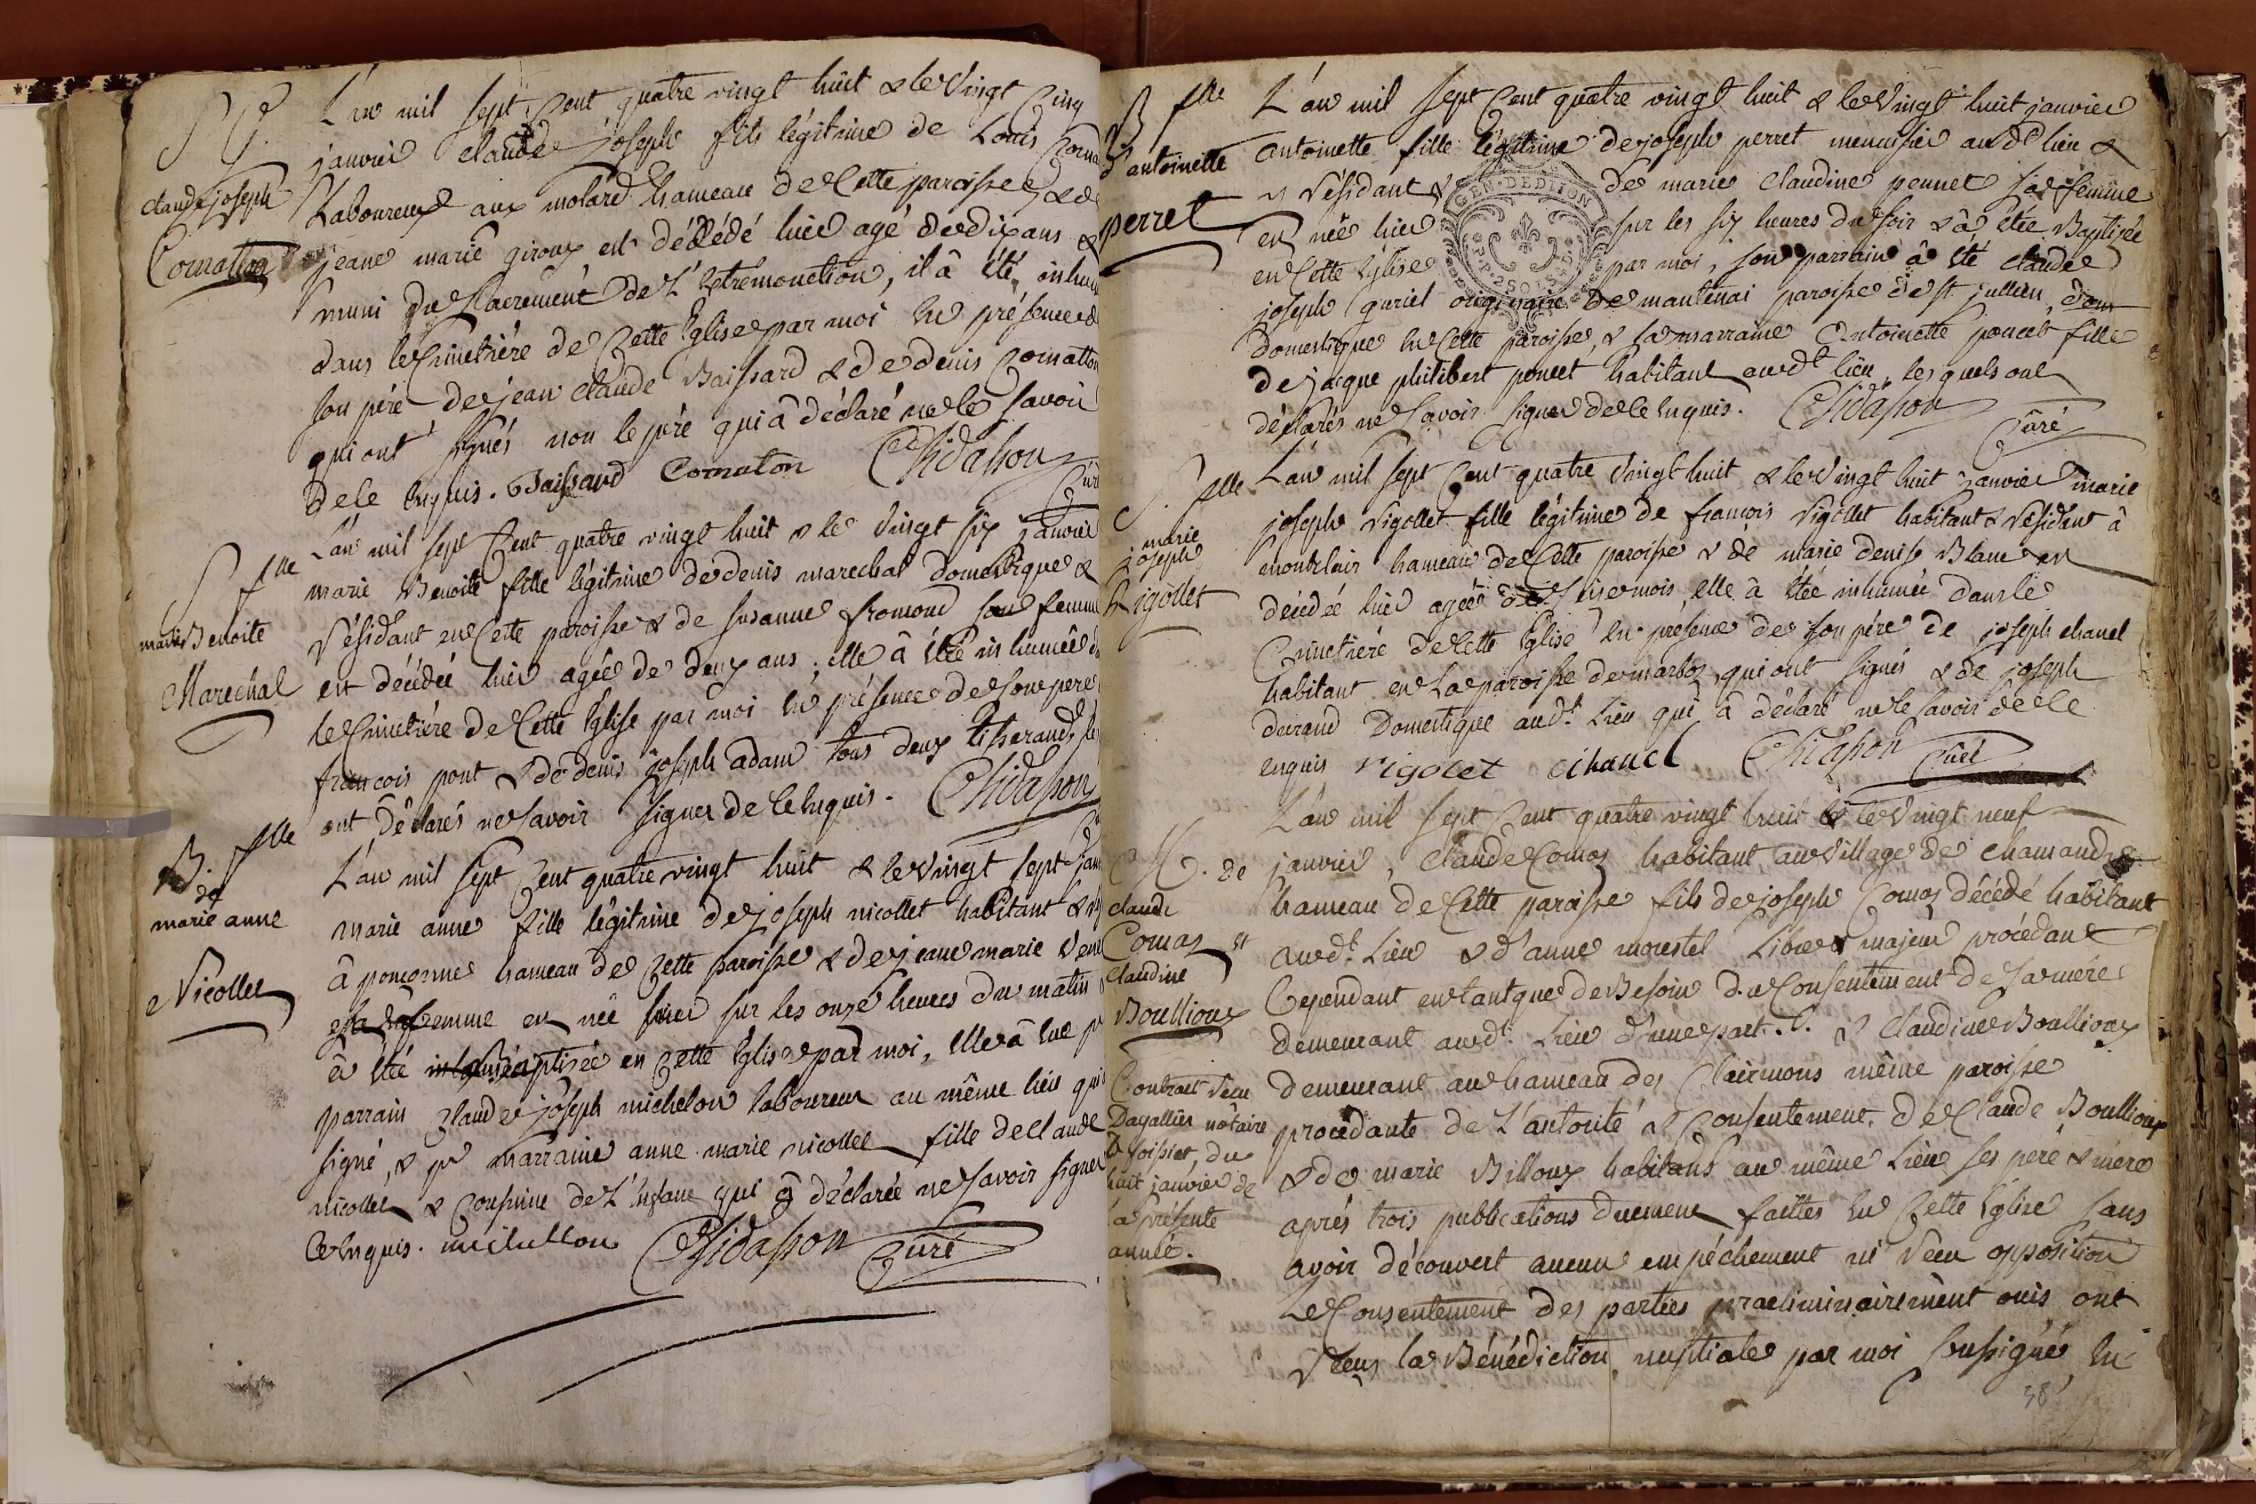 S. f.
claude joseph
Comatton
L'an mil sept cent quatre vingt huit & le vingt cinq
janvier claude joseph fils légitime de Louis
Laboureux aux molard hameau de cette paroisse & de
jeane marie giroux est décédé hier agé de dix ans &
muni du sacrement de l'extremonction, il â été inhumé
dans le cimetière de cette Eglise par moi en présence de
son père de jean claude Baissard & de denis comatton
qui ont signés non le père qui â déclaré ne le savoir
de ce enquis. Baissard Comaton Chidasson
Curé
S. flle
marie Benoite
Marechal
L'an mil sept cent quatre vingt huit & le vingt six janvier
marie Benoite fille légitime de denis marechal domestique &
résidant en cette paroisse & de susanne fromond sa femme
est décédée hier agée de deux ans, elle â été inhumée
le cimetière de cette Eglise par moi en présence de son père,
francois pont & de denis joseph adam tous deux tisserands
ont déclarés ne savoir signer de ce enquis. Chidasson
B. flle
de
marie anne
Nicollet
L'an mil sept cent quatre vingt huit & le vingt sept
marie anne fille légitime de joseph nicollet habitant &
â ponçonne hameau de cette paroisse & de jeane marie
sa femme est née hier sur les onze heures du matin
â été baptisée en cette Eglise par moi, elle â eue pr
parrain claude joseph michelon laboureur au même lieu qui
signé, & pr marraine anne marie nicollet fille de claude
nicollet & cousine de l'enfant qui â déclarée ne savoir signer
ce enquis. michellon Chidasson
Curé
B flle
d'antoinette
perret
L'an mil sept cent quatre vingt huit & le vingt huit janvier
antoinette fille légitime de joseph perret menuisier audt lieu &
y résidant & de marie claudine pennet sa femme
est née hier sur les six heures du soir & â été Baptisée
en cette Eglise par moi, son parrain â été claude
joseph curiel originaire de mantenai paroisse de st. jullien, dom
GEN. DEDITON
Domestique en cette paroisse, & la marraine antoinette poncet fille
de jacque philibert poncet habitant audt lieu, lesquels ont
déclarés ne savoir signer de ce enquis. Chidasson
Curé
S. flle
marie
josephe
Rigollet
L'an mil sept cent quatre vingt huit & le vingt huit janvier marie
josephe rigollet fille légitime de françois rigollet habitant & résidant â
montclair hameau de cette paroisse & de marie denise Blanc est
décédée hier agée de mois, elle â été inhumée dans le
cimetière de cette Eglise en presence de son père de joseph chanel
habitant en la paroisse de marboz, qui ont signés & de joseph
durand Domestique audt. Lieu qui â déclaré ne le savoir de ce
enquis rigolet chanel Chidasson
Curé
M. de
claude
Comas et
claudine
Boullioux
Contract recu
Dagallier nôtaire
â foissiat, du
huit janvier de
la présente
année.
L'an mil sept cent quatre vingt huit & le vingt neuf
janvier, claude Comas habitant au village de chamandre
hameau de cette paroisse fils de joseph Comas décédé habitant
audt. Lieu & d'anne morestel Libre & majeur procédant
Cependant en tant que de Besoin du Consentement de sa mère
demeurant audt. Lieu d'une part. & claudine Boullioux
demeurant au hameau des Clairmons même paroisse
procédante de L'autorité & Consentement de Claude Boullioux
& de marie Billoux habitans au même Lieu ses père & mère
après trois publications duement faittes en cette Eglise sans
avoir découvert aucun empéchement ni reçu opposition
Le Consentement des parties praeliminairement ouis ont
reçus la Bénédiction nuptiale par moi soussigné en
38